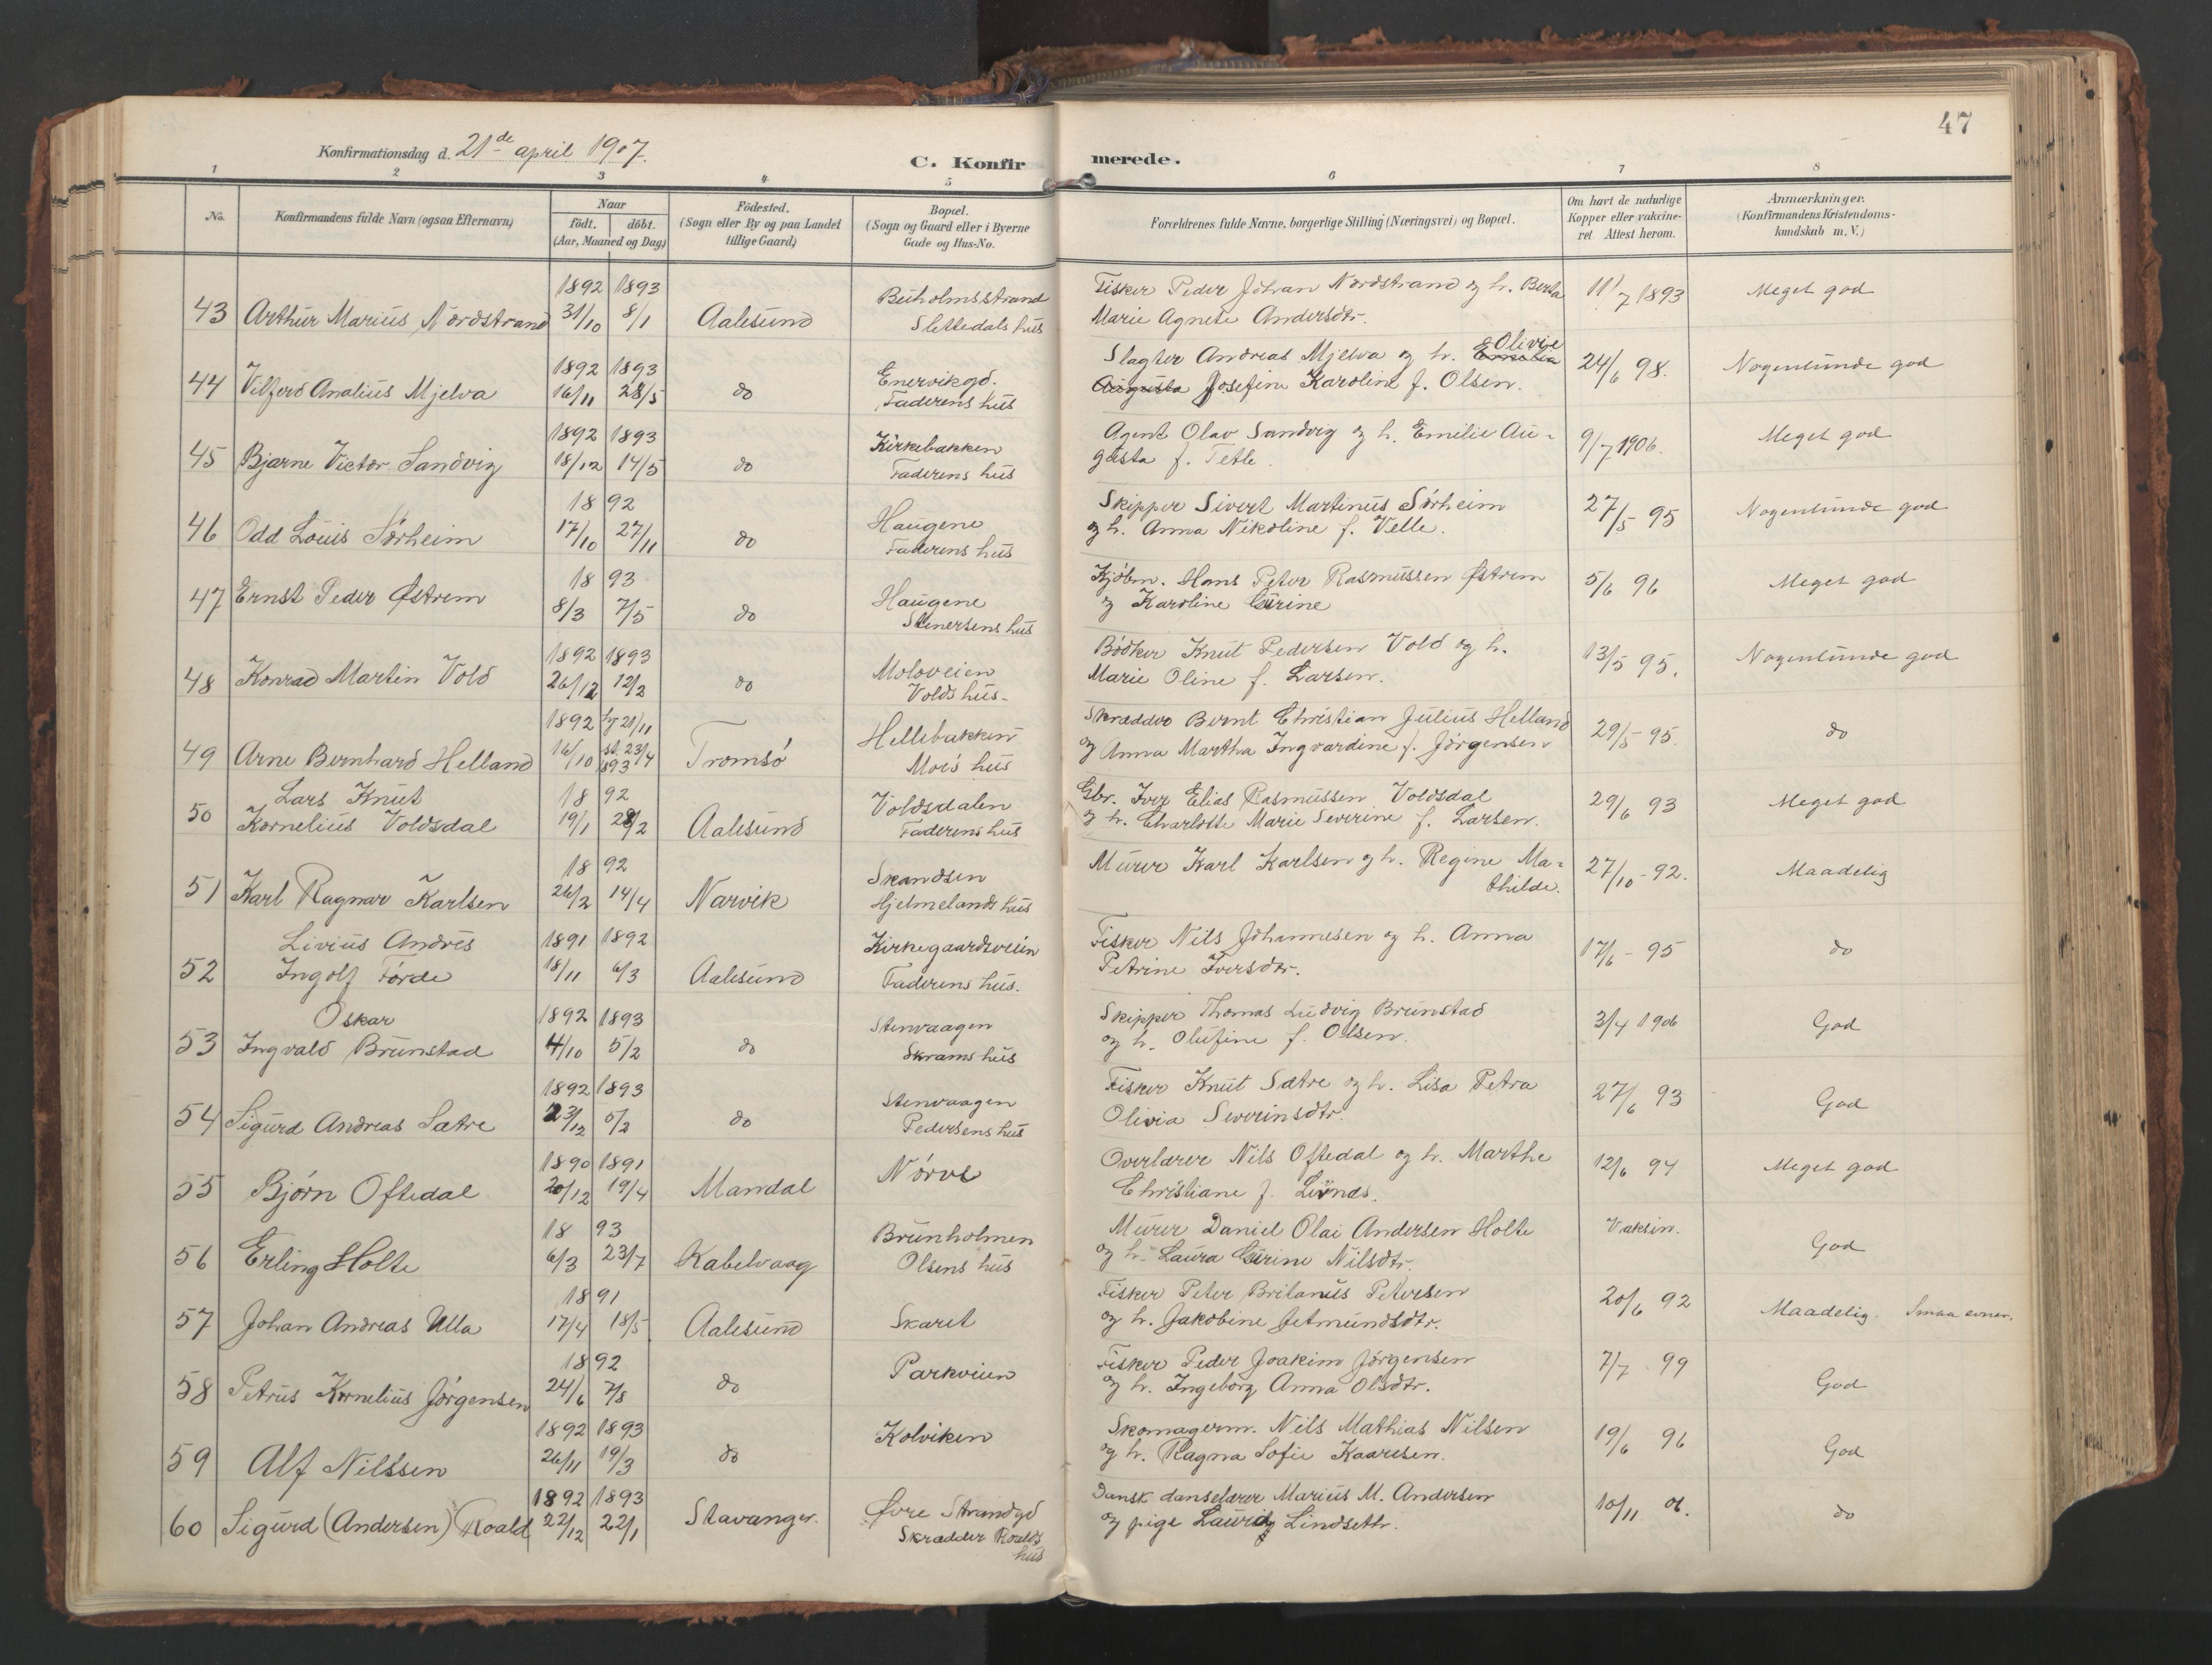 47
Konfirmationsdag d. 21de april 1907.
C. Konfirmerede.
1 2 3 4 5 6 7 8
No. Konfirmandens fulde Navn (ogsaa Efternavn) Naar födt. döbt. (Aar, Maaned og Dag) Födested. (Sogn eller By og paa Landet tillige Gaard) Bopæl. (Sogn og Gaard eller i Byerne Gade og Hus-No. Forældrenes fulde Navne, borgerlige Stilling (Næringsvei) og Bopæl. Om havt de naturlige Kopper eller vakcineret. Attest herom. Anmærkninger. (Konfirmandens Kristendomskundskab m. V.)
1892 1893 Buholmsstrand Fisker Peder Johan Nordstrand og h. Berta 11/7 1893 Meget god
43 Arthur Marius Nordstrand 31/10 8/1 Aalesund Slettedals hus Marie Agnete Andersdtr.
1892 1893 Enervikgd. Slagter Andreas Mjelva og h. Olivie 24/6 98. Nogenlunde god
44 Vilferd Analius Mjelva 16/11 28/5 do Faderens hus Augusta Josefine Karoline f. Olsen.
1892 1893 Kirkebakken Agent Olav Sandvig og h. Emilie Au- 9/7 1906. Meget god
45 Bjarne Victor Sandvig 18/12 14/5 do Faderens hus gusta f. Tetle.
1892 Haugene Skipper Sivert Martinus Sörheim 27/5 95 Nogenlunde god
46 Odd Louis Sörheim 17/10 27/11 do Faderens hus og h. Anna Nikoline f. Velle.
1893 Haugene Kjöbm. Hans Peter Rasmussen Østrem 5/6 96 Meget god
47 Ernst Peder Østrem 8/3 7/5 do Stenersens hus og Karoline Gurine
1892 1893 Moloveien Bödker Knut Pedersen Vold og h. 13/5 95. Nogenlunde god
48 Konrad Martin Vold 26/12 12/2 do Volds hus. Marie Oline f. Larsen.
1892 hj 21/11 Hellebakken Skrædder Bernt Christian Julius Helland 29/5 95. do
49 Arne Bernhard Helland 16/10 st. 23/4 893 Tromsö Moe's hus og Anna Martha Ingvardine f. Jörgensen
Lars Knut 1892 Voldsdalen Gbr. Iver Elias Rasmussen Voldsdal 29/6 93 Meget god
50 Kornelius Voldsdal 19/1 28/2 Aalesund Faderens hus og h. Charlotte Marie Severine f. Larsen.
1892 Skandsen Murer Karl Karlsen og h. Regine Ma- 27/10 - 92. Maadelig
51 Karl Ragnar Karlsen 26/2 14/4 Narvik Hjelmelands hus thilde.
Livius Andrés 1891 1892 Kirkegaardsveien Fisker Nils Johannesen og h. Anna 17/6 - 95 do
52 Ingolf Förde 18/11 6/3 Aalesund Faderens hus. Petrine Iversdtr.
Oskar 1892 1893 Stenvaagen Skipper Thomas Ludvig Brunstad 3/4 1906 God
53 Ingvald Brunstad 4/10 5/2 do Skrams hus og h. Olufine f. Olsen.
1892 1893 Stenvaagen Fisker Knut Sætre og h. Lisa Petra 27/6 93 God
54 Sigurd Andreas Sætre 23/12 5/2 do Pedersens hus Olivia Severinsdtr.
1890 1891 Nörve Overlærer Nils Oftedal og h. Marthe 12/6 94 Meget god
55 Björn Oftedal 20/12 19/4 Mandal Christiane f. Lunds.
1893 Brunholmen Murer Daniel Olai Andersen Holte Vaksin. God
56 Erling Holte 6/3 23/7 Kabelvaag Olsens hus og h. Laura Gurine Nilsdtr.
1891 Fisker Peter Britanus Petersen 20/6 92 Maadelig. Smaa evner.
57 Johan Andreas Ulla 17/4 18/5 Aalesund Skaret og h. Jakobine Jetmundsdtr.
1892 Parkveien Fisker Peder Joakim Jörgensen 7/7 99 God
58 Petrus Kornelius Jörgensen 24/6 7/8 do og h. Ingeborg Anna Olsdtr.
1892 1893 Kolviken Skomagerm. Nils Mathias Nilsen 19/6 96 God
59 Alf Nilssen 26/11 19/3 do og h. Ragna Sofie Kaaresen.
1892 1893 Øvre Strandgd Dansk danselærer Marius M. Andersen 10/11 06. do
60 Sigurd (Andersen) Roald 22/12 22/1 Stavanger. Skrædder Roalds hus og pige Lindseth.